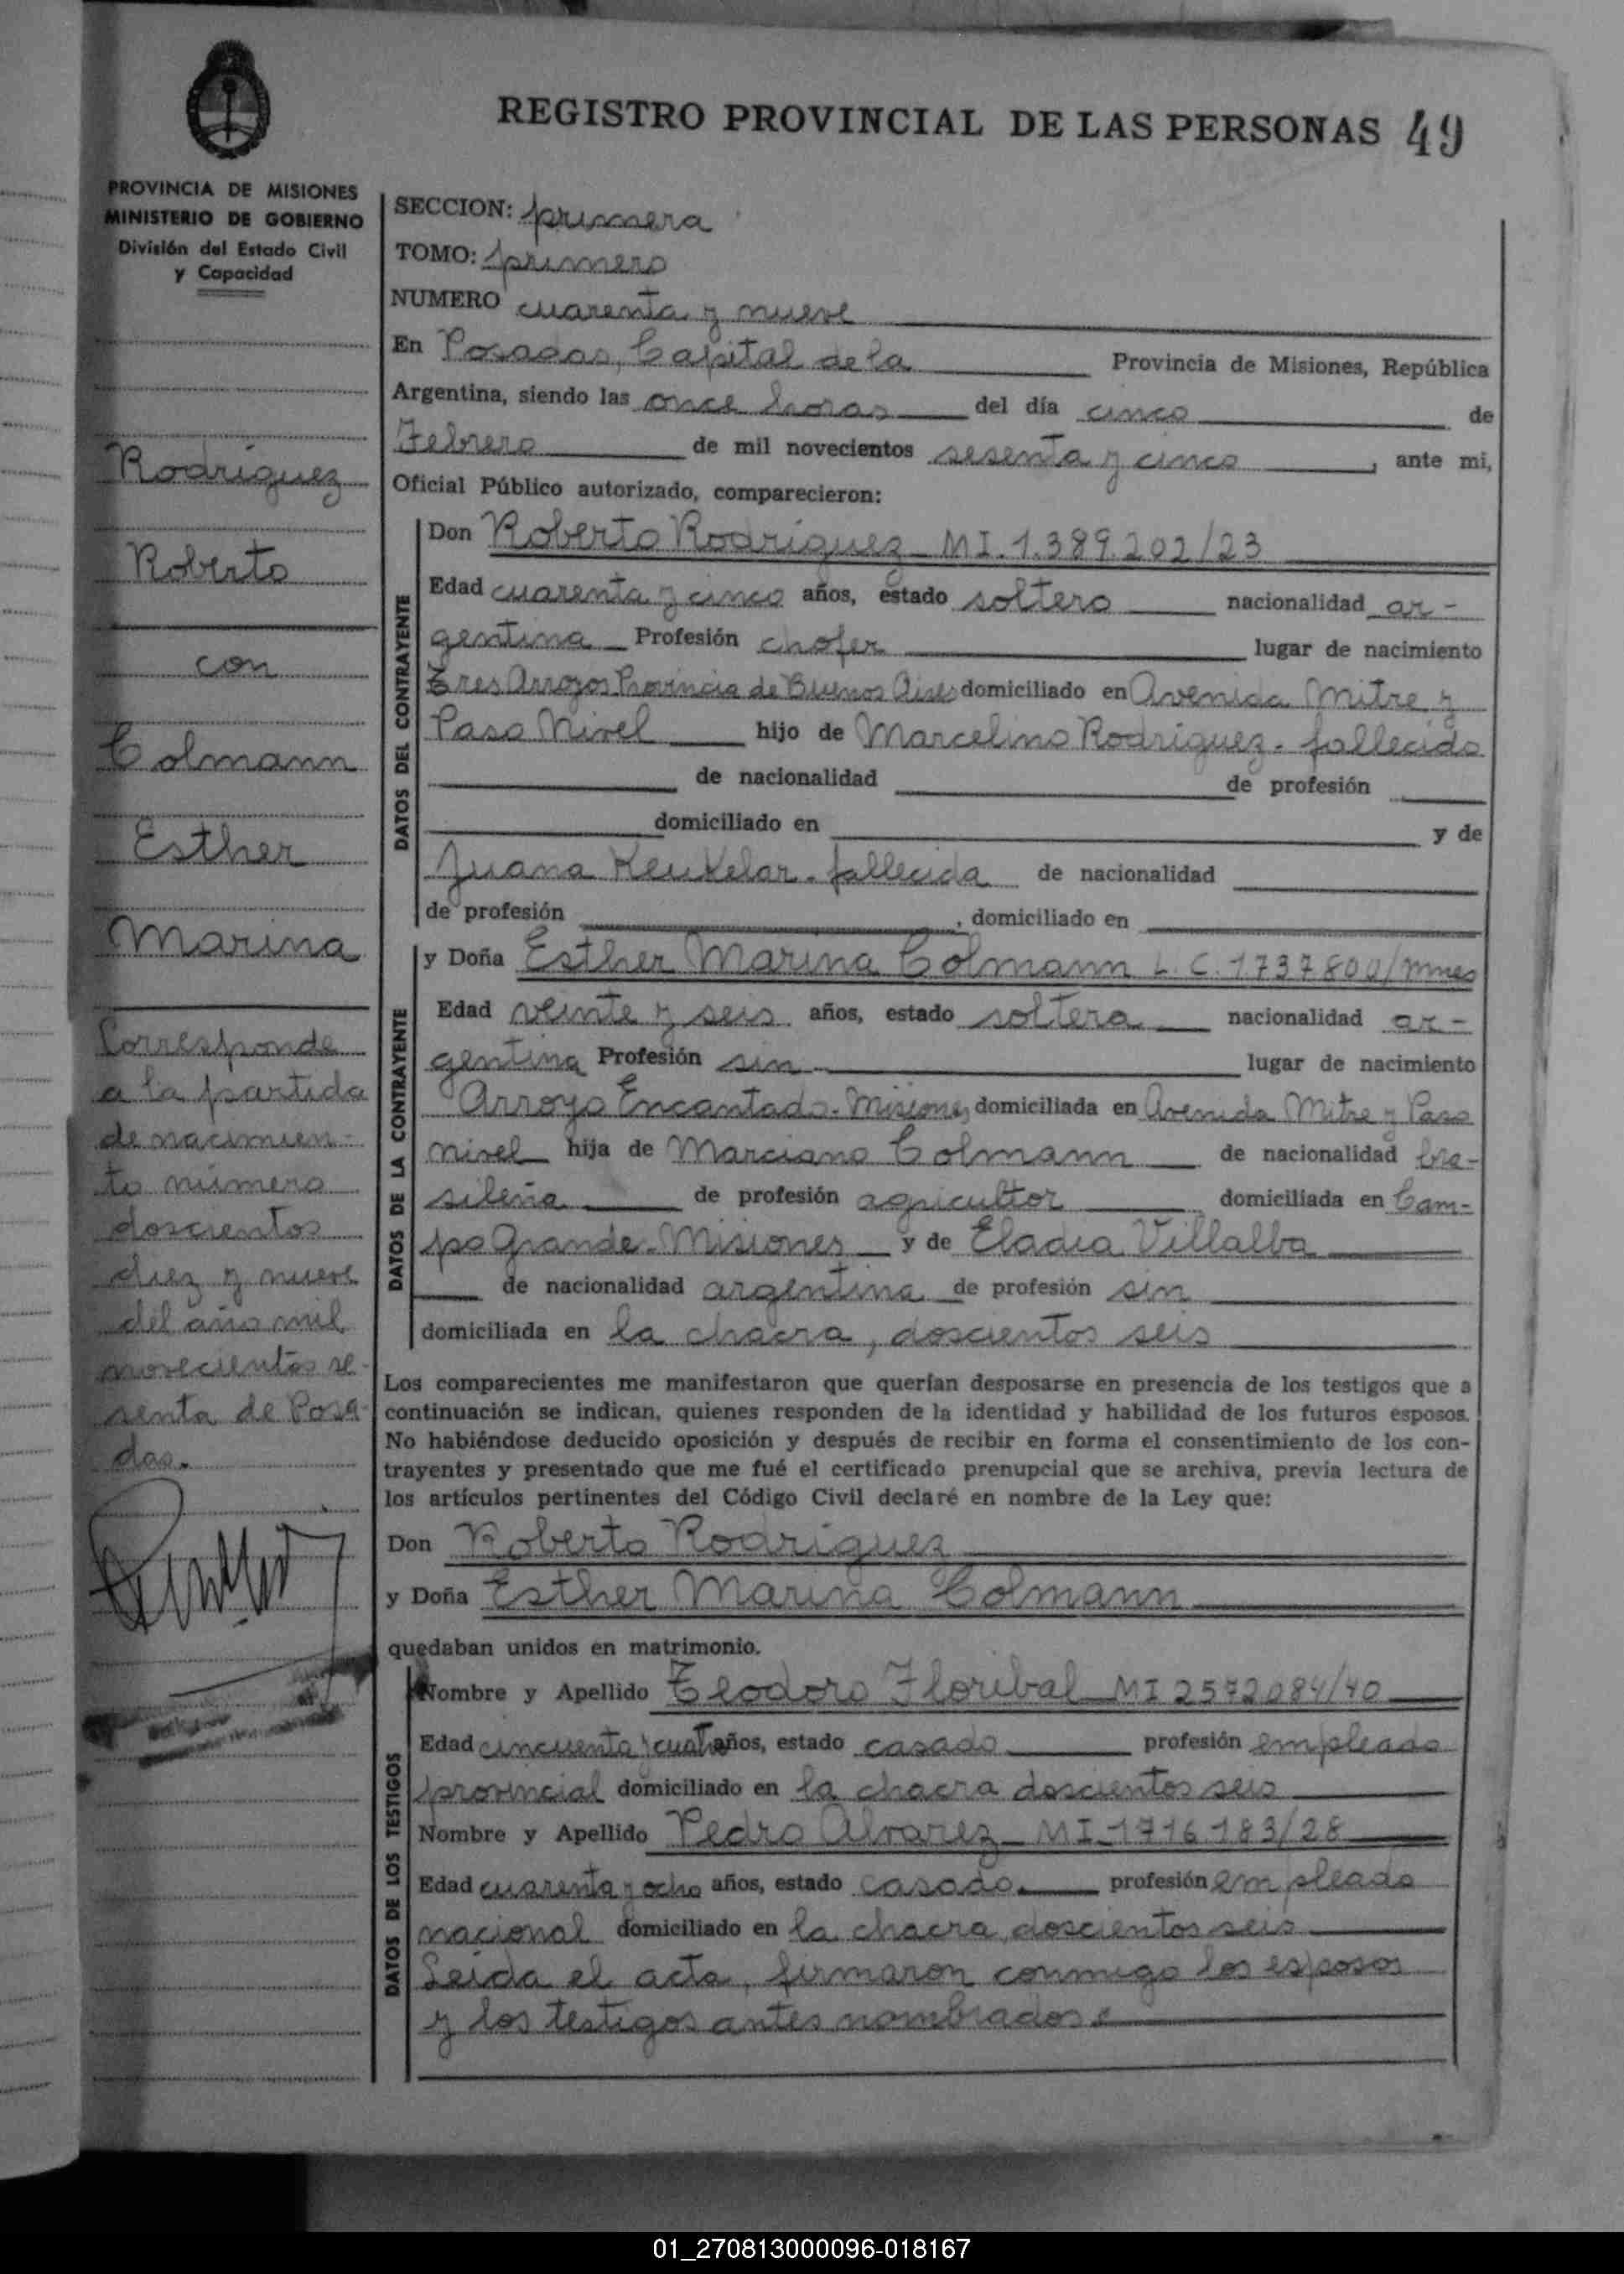 REGISTRO PROVINCIAL DE LAS PERSONAS 49
PROVINCIA DE MISIONES
MINISTERIO DE GOBIERNO
División del Estado Civil
y Capacidad
Rodríguez
Roberto
con
Colmann
Esther
Marina
Corresponde
a la partida
de nacimien-
to número
doscientos
diez y nueve
del año mil
novecientos se-
senta de Posa-
das.
SECCION: primera
TOMO: primero
NUMERO cuarenta y nueve
En Posadas, Capital de la Provincia de Misiones, República
Argentina, siendo las once horas del día cinco de
Febrero de mil novecientos sesenta y cinco, ante mi,
Oficial Público autorizado, comparecieron:
DATOS DEL CONTRAYENTE
Don Roberto Rodríguez MI. 1.389.202/23
Edad cuarenta y cinco años, estado soltero nacionalidad ar-
gentina Profesión chofer lugar de nacimiento
Tres Arroyos Provincia de Buenos Aires domiciliado en Avenida Mitre y
Paso Nivel hijo de Marcelino Rodríguez. fallecido
de nacionalidad de profesión
domiciliado en y de
Juana Keukelar. fallecida de nacionalidad
de profesión , domiciliado en
DATOS DE LA CONTRAYENTE
y Doña Esther Marina Colmann L. C. 1737800/mnes
Edad veinte y seis años, estado soltera nacionalidad ar-
gentina Profesión sin lugar de nacimiento
Arroyo Encantado. Misiones domiciliada en Avenida Mitre y Paso
nivel hija de Marciano Colmann de nacionalidad bra-
sileña de profesión agricultor domiciliada en Cam-
po Grande. Misiones y de Eladia Villalba
de nacionalidad argentina de profesión sin
domiciliada en la chacra, doscientos seis
Los comparecientes me manifestaron que querían desposarse en presencia de los testigos que a
continuación se indican, quienes responden de la identidad y habilidad de los futuros esposos.
No habiéndose deducido oposición y después de recibir en forma el consentimiento de los con-
trayentes y presentado que me fué el certificado prenupcial que se archiva, previa lectura de
los artículos pertinentes del Código Civil declaré en nombre de la Ley que:
Don Roberto Rodríguez
y Doña Esther Marina Colmann
quedaban unidos en matrimonio.
DATOS DE LOS TESTIGOS
Nombre y Apellido Teodoro Floribal MI 2572084/40
Edad cincuenta y cuatro años, estado casado profesión empleado
provincial domiciliado en la chacra doscientos seis
Nombre y Apellido Pedro Alvarez MI 1716183/28
Edad cuarenta y ocho años, estado casado. profesión empleado
nacional domiciliado en la chacra doscientos seis
Leida el acta, firmaron conmigo los esposos
y los testigos antes nombrados.
01_270813000096-018167